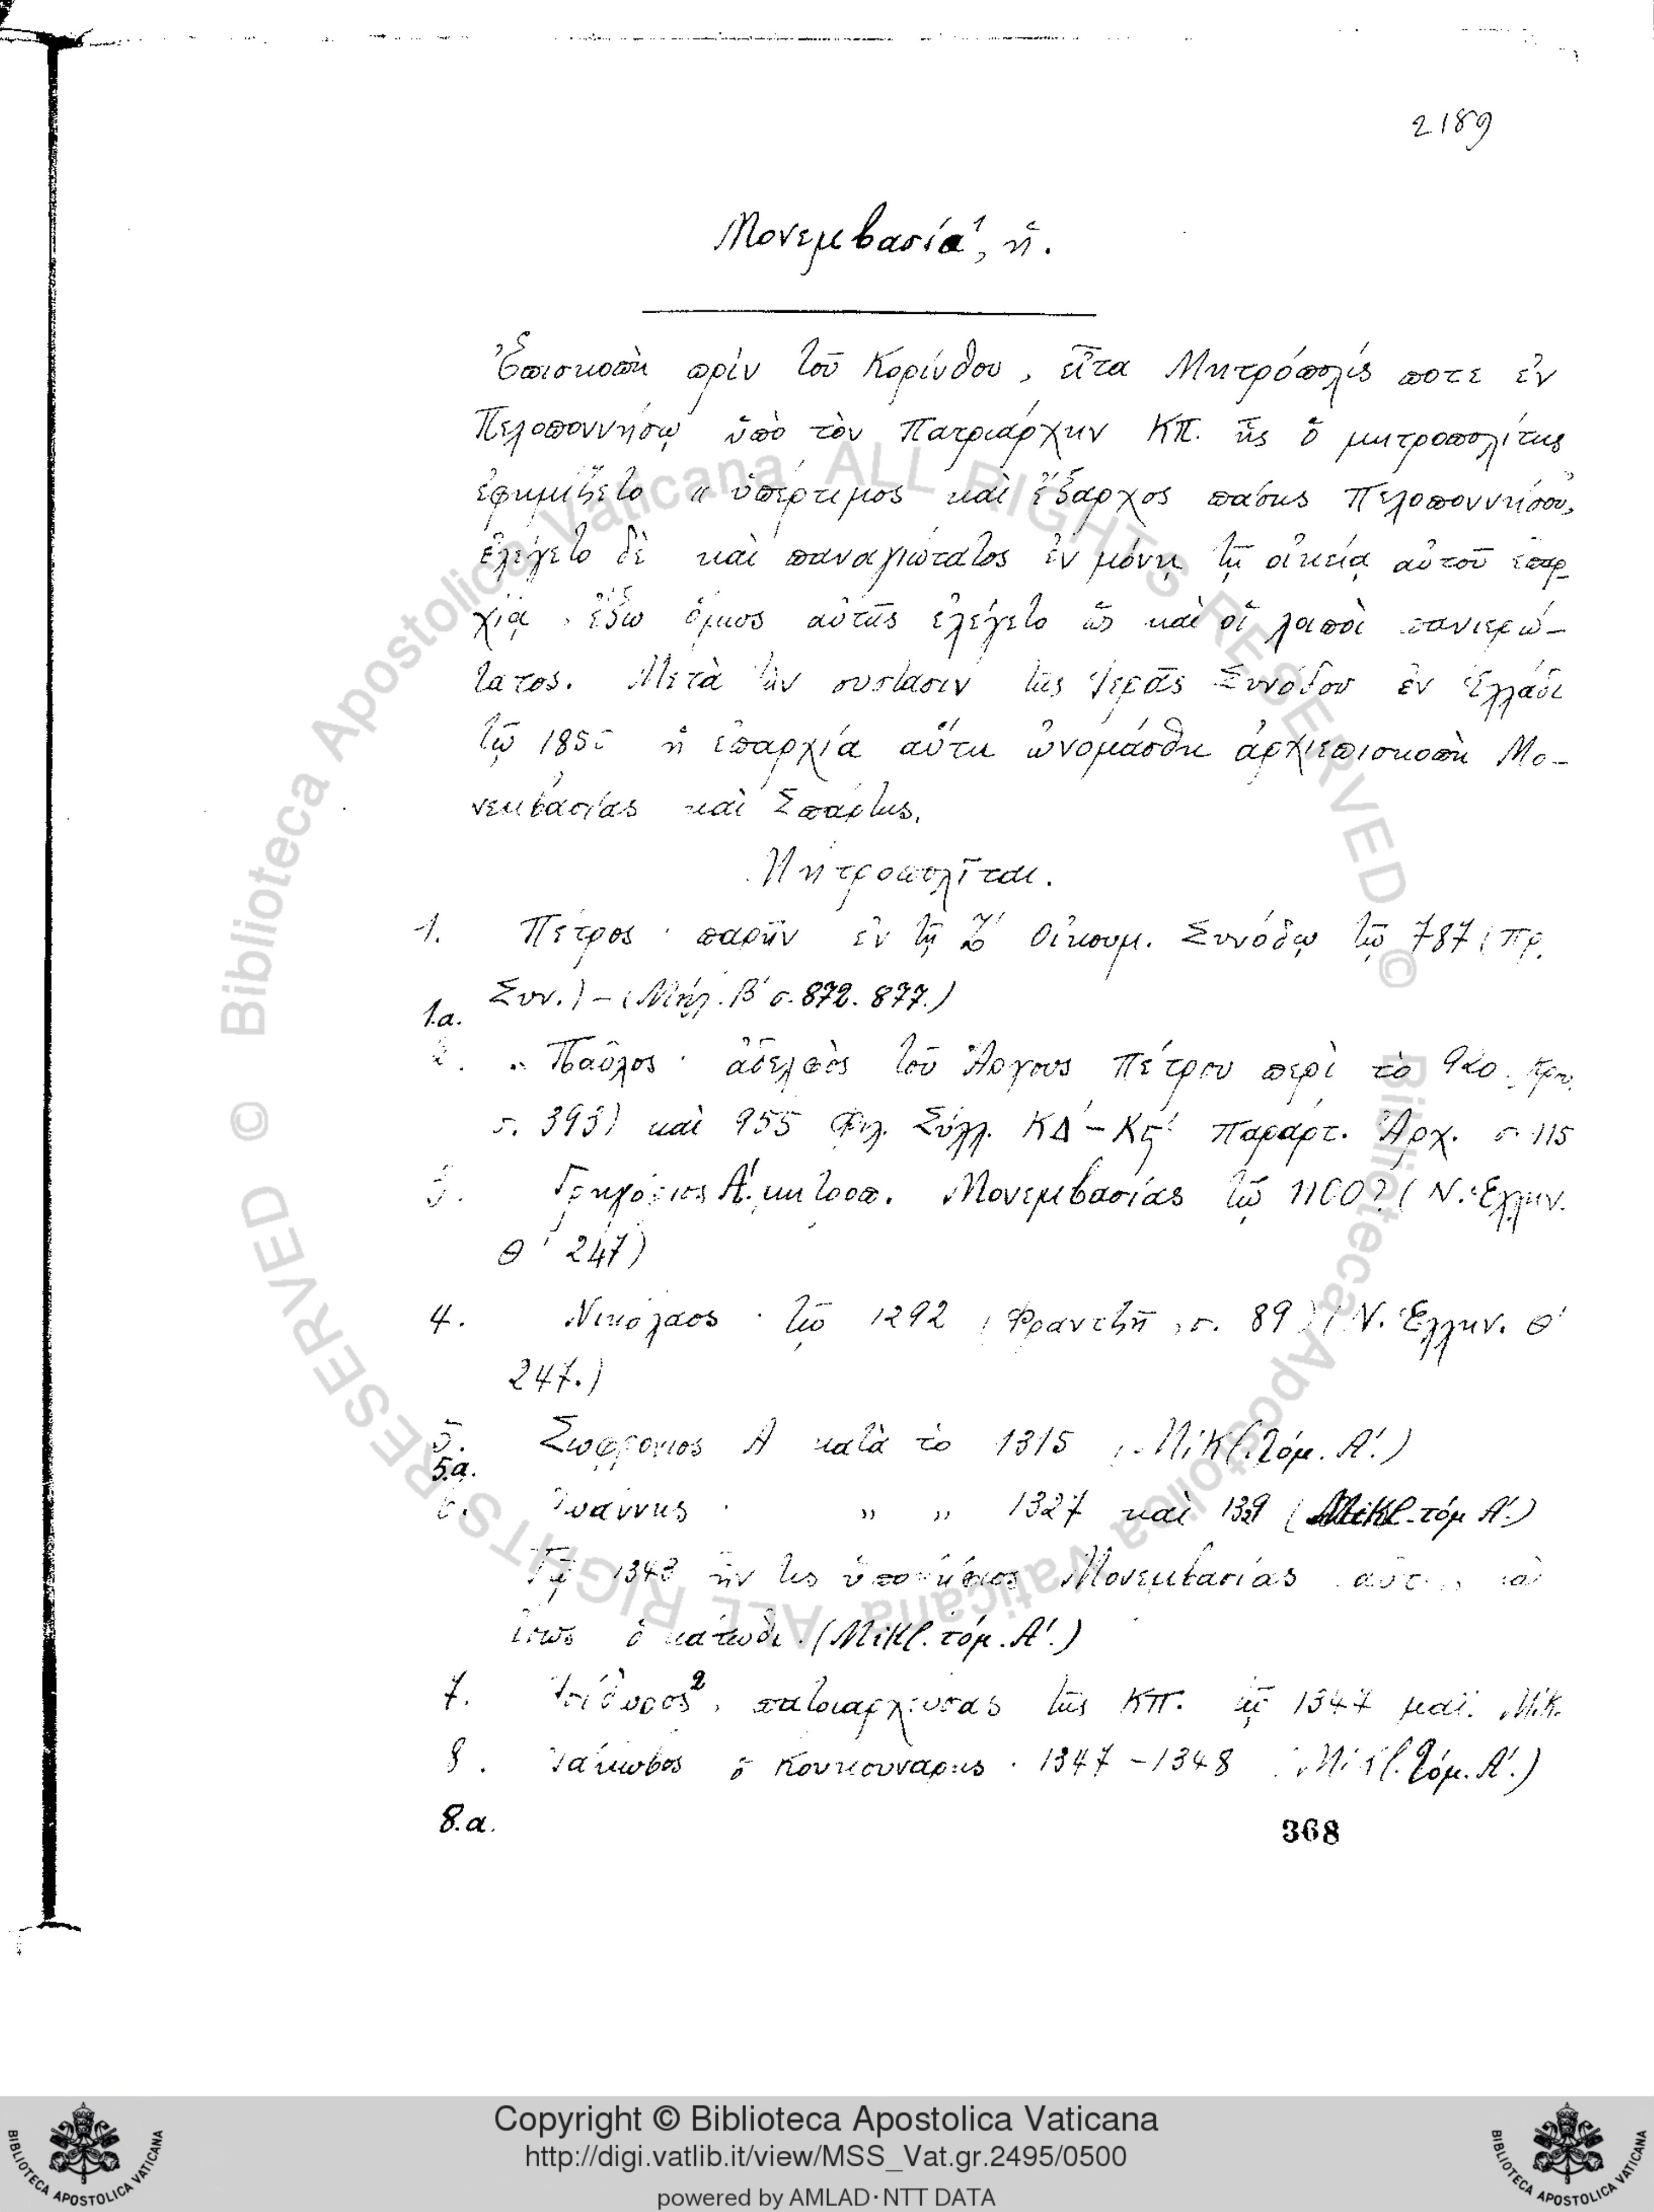 2189
Μονεμβασία¹, ἡ.
Ἐπισκοπὴ πρὶν τοῦ Κορίνθου, εἶτα Μητρόπολίς ποτε ἐν
Πελοποννήσῳ ὑπὸ τὸν Πατριάρχην ΚΠ. ἧς ὁ μητροπολίτης
ἐφημίζετο „ ὑπέρτιμος καὶ ἔξαρχος πάσης Πελοποννήσου,
ἐλέγετο δὲ καὶ παναγιώτατος ἐν μόνῃ τῇ οἰκείᾳ αὐτοῦ ἐπαρ-
χίᾳ · ἔξω ὅμως αὐτῆς ἐλέγετο ὡς καὶ οἱ λοιποὶ πανιερώ-
τατος. Μετὰ τὴν σύστασιν τῆς Ἱερᾶς Συνόδου ἐν Ἑλλάδι
τῷ 185 ἡ ἐπαρχία αὕτη ὠνομάσθη ἀρχιεπισκοπὴ Μο-
νεμβασίας καὶ Σπάρτης.
Μητροπολῖται.
1. Πέτρος · παρῆν ἐν τῇ Ζ′ Οἰκουμ. Συνόδῳ τῷ 787 (Πρ.
Συν.) – (Μήλ. Β′ σ. 872. 877.)
1.a.
2. Παῦλος · ἀδελφὸς τοῦ Ἄργους Πέτρου περὶ τὸ 920
σ. 393) καὶ 955 Φιλ. Σύλλ. ΚΔ′ – Κϛ′ Παράρτ. Ἀρχ. σ. 115
3. Γρηγόριος Α′. μητροπ. Μονεμβασίας τῷ 1100? (Ν. Ἑλλην.
Θ′ 247)
4. Νικόλαος · τῷ 1292 (Φραντζῆ σ. 89) (Ν. Ἑλλην. Θ′
247.)
5. Σωφρόνιος Α κατὰ τὸ 1315 (Mikl. τόμ. Α′.)
5.a.
6. Ἰωάννης · „ „ 1327 καὶ 1329 (Mikl. τόμ Α′.)
Τῷ 1343 ἦν τις ὑποψήφιος Μονεμβασίας
ἴσως ὁ κάτωθι. (Mikl. τόμ. Α′.)
7. Ἰσίδωρος², πατριαρχεύσας τῆς ΚΠ. τῷ 1347 μαΐ. Mik.
8. Ἰάκωβος ὁ Κουκουνάρης · 1347 – 1348 (Mikl. τόμ. Α′.)
8.a.
368
Copyright © Biblioteca Apostolica Vaticana
http://digi.vatlib.it/view/MSS_Vat.gr.2495/0500
powered by AMLAD·NTT DATA
BIBLIOTECA APOSTOLICA VATICANA
BIBLIOTECA APOSTOLICA VATICANA
© Biblioteca Apostolica Vaticana ALL RIGHTS RESERVED
© Biblioteca Apostolica Vaticana ALL RIGHTS RESERVED